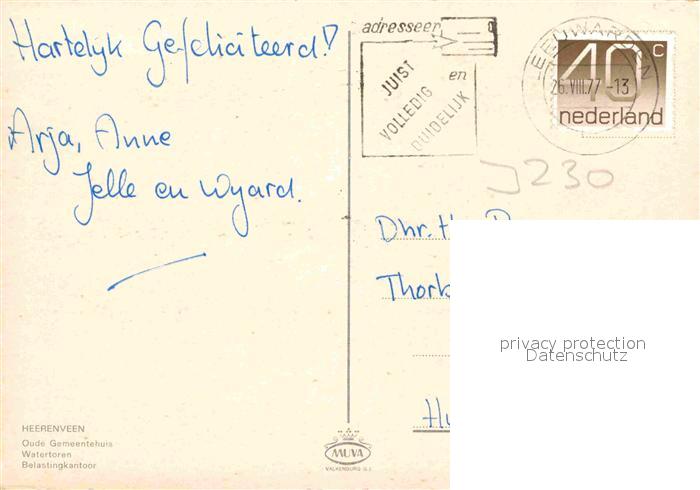 Hartelijk Gefeliciteerd!
Arja, Anne
Jelle en Wyard.
HEERENVEEN
Oude Gemeentehuis
Watertoren
Belastingkantoor
MUVA
VALKENBURG (L.)
adresseer
JUIST
en
VOLLEDIG
DUIDELIJK
LEEUWARDEN
26.VIII.77-13
40 c
nederland
J230
Dhr. H.
privacy protection
Datenschutz